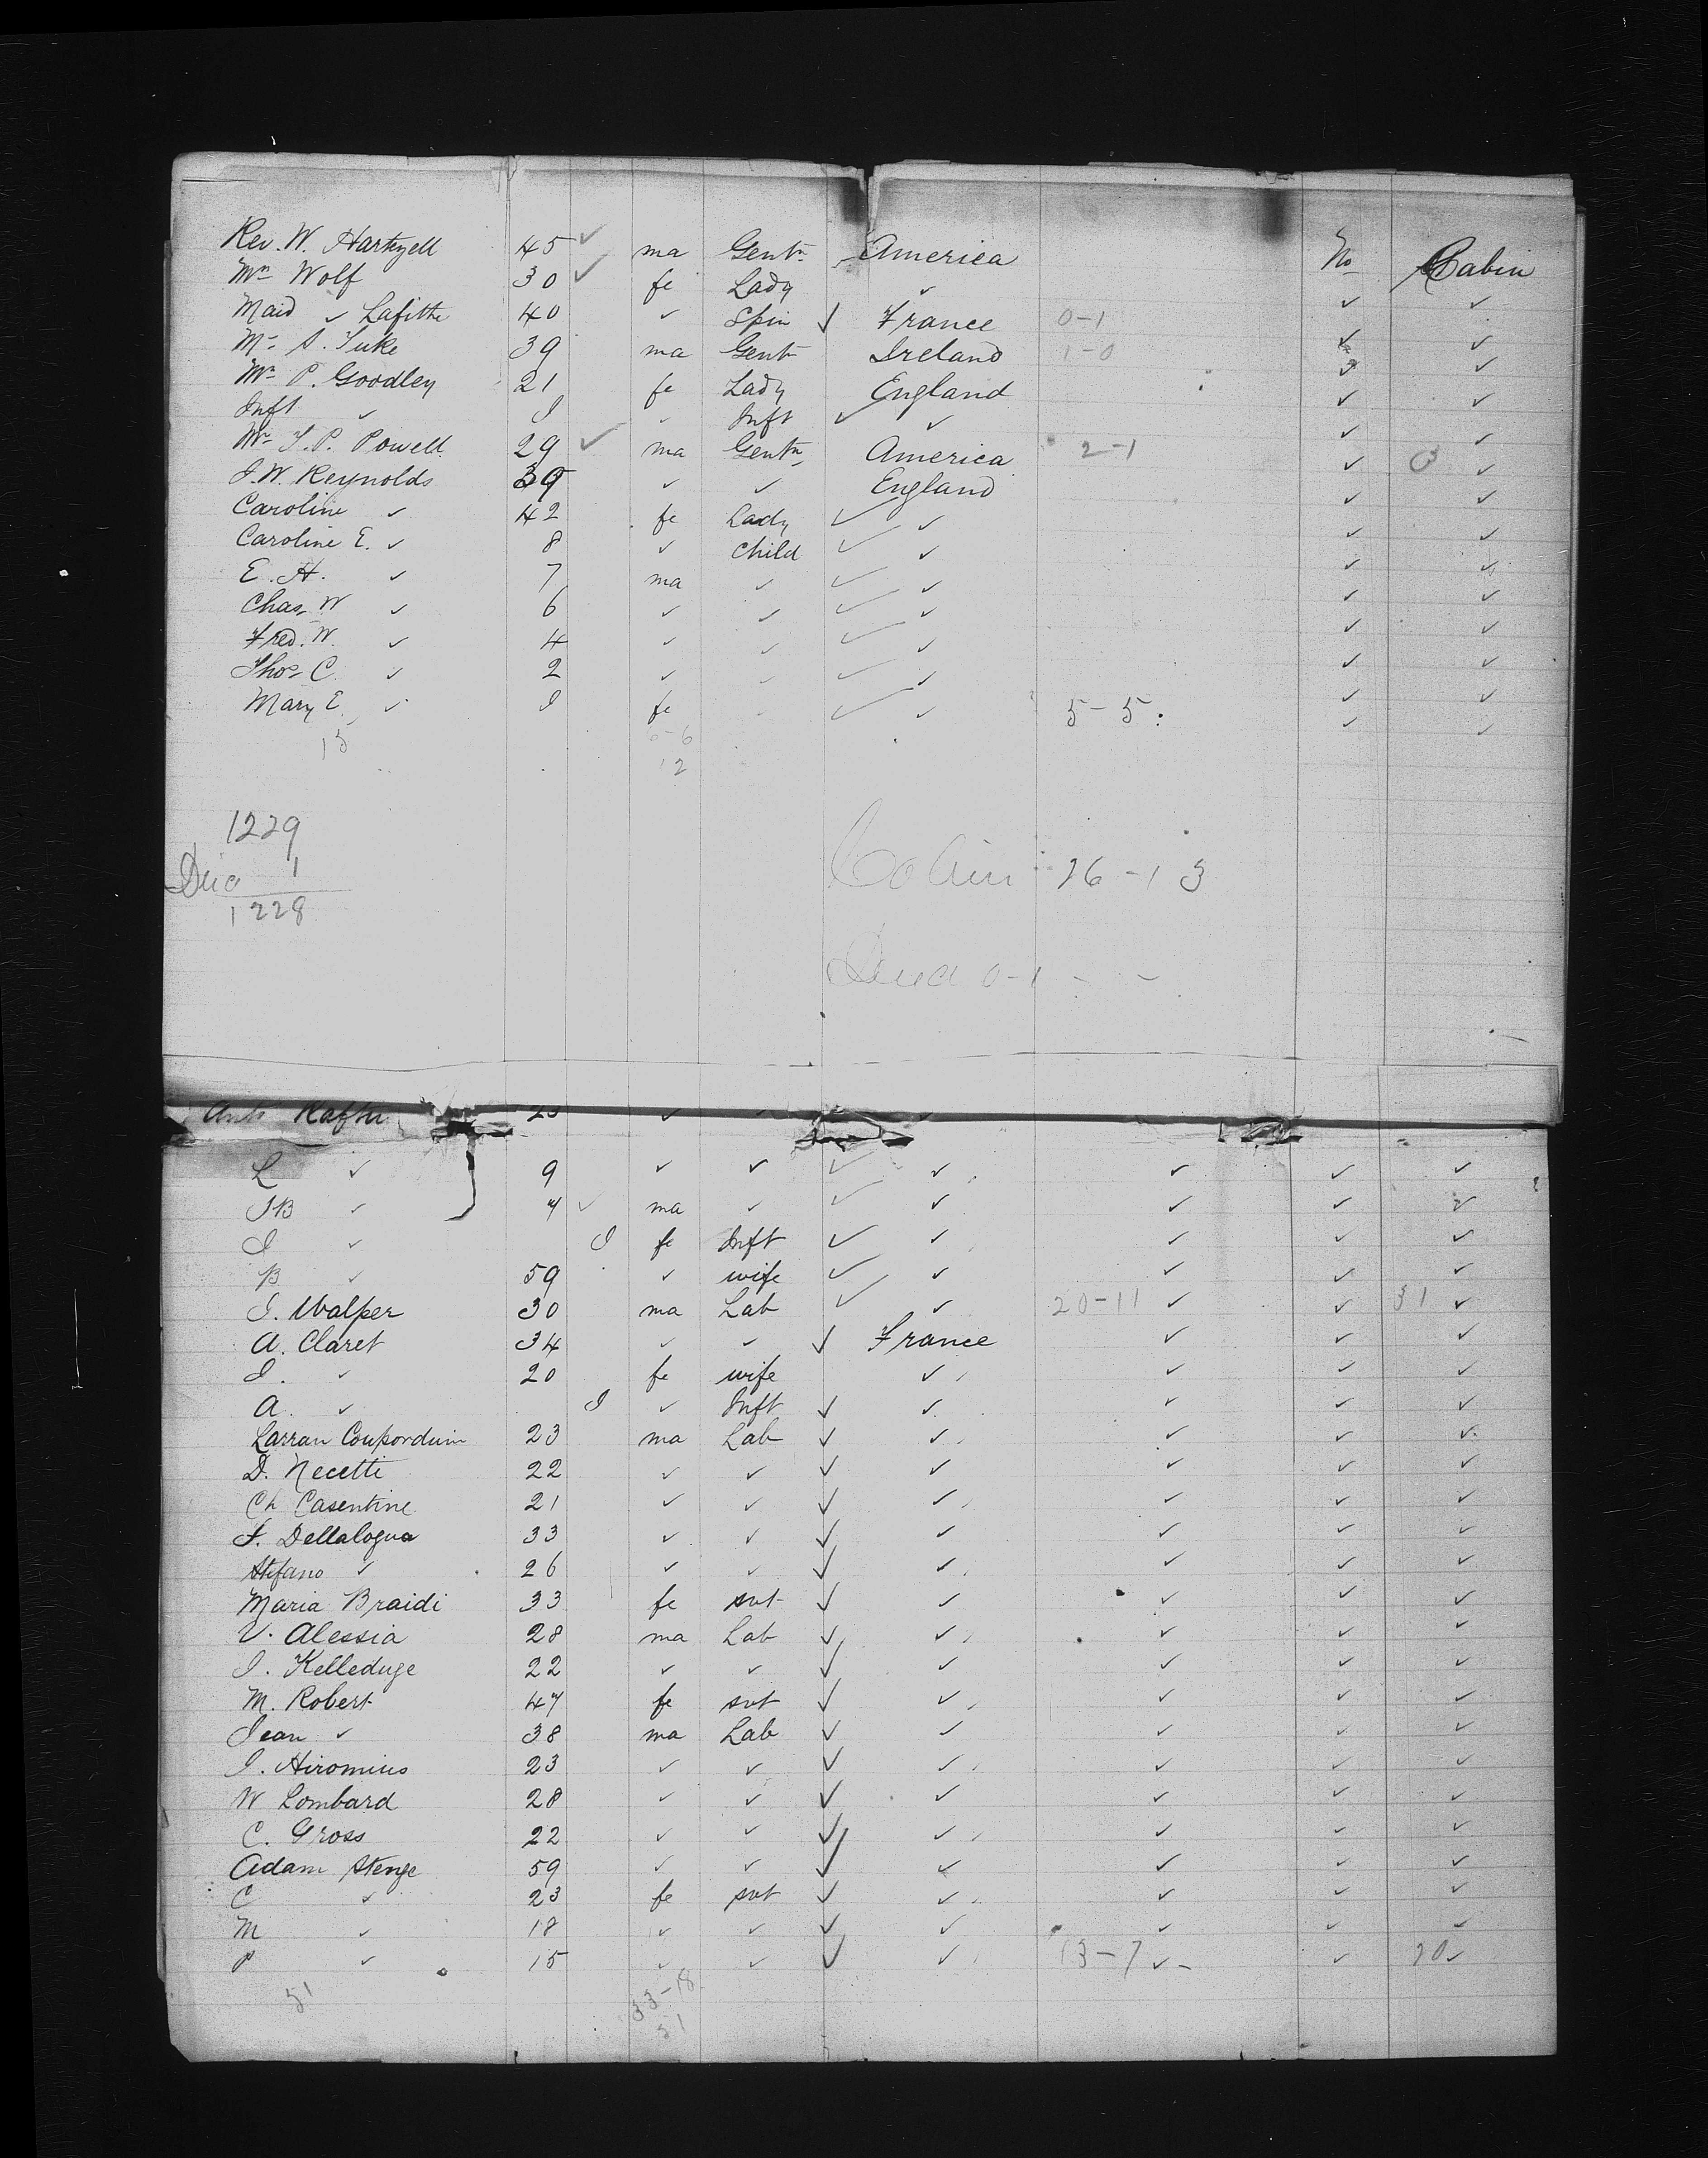 Rev. W. Hartzell 45 ✓ ma Gentn America No Cabin
Mrs Wolf 30 ✓ fe Lady ✓ ✓ ✓
Maid ✓ Lafitte 40 ✓ Spin ✓ France 0-1 ✓ ✓
Mr S. Tuke 39 ma Gent Ireland 1-0 ✓ ✓
Mrs P. Goodley 21 fe Lady England ✓ ✓
Inft ✓ I ✓ Inft ✓ ✓ ✓ ✓
Mr T. P. Powell 29 ✓ ma Gentn America 2-1 ✓ ✓
J. W. Reynolds 39 ✓ ✓ England ✓ ✓
Caroline ✓ 42 fe Lady ✓ ✓ ✓ ✓
Caroline E. ✓ 8 ✓ child ✓ ✓ ✓ ✓
E. H. ✓ 7 ma ✓ ✓ ✓ ✓ ✓
Chas W ✓ 6 ✓ ✓ ✓ ✓ ✓ ✓
Fred. W. ✓ 4 ✓ ✓ ✓ ✓ ✓ ✓
Thos C. ✓ 2 ✓ ✓ ✓ ✓ ✓ ✓
Mary E. ✓ I fe ✓ ✓ ✓ 5-5 ✓ ✓
15 6-6
12
1229
1
1228
Cabin 26-13
Died 0-1
L ✓ 9 ✓ ✓ ✓ ✓ ✓ ✓ ✓
JB ✓ 7 ✓ ma ✓ ✓ ✓ ✓ ✓ ✓
I ✓ I fe Inft ✓ ✓ ✓ ✓ ✓
B ✓ 59 ✓ wife ✓ ✓ ✓ ✓ ✓
J. Walper 30 ma Lab ✓ ✓ 20-11 ✓ ✓ 31 ✓
A. Claret 34 ✓ ✓ ✓ France ✓ ✓ ✓
J. ✓ 20 fe wife ✓ ✓ ✓ ✓
A. ✓ I ✓ Inft ✓ ✓ ✓ ✓ ✓
Larran Coupordum 23 ma Lab ✓ ✓ ✓ ✓ ✓
D. Necetti 22 ✓ ✓ ✓ ✓ ✓ ✓ ✓
Ch Casentine 21 ✓ ✓ ✓ ✓ ✓ ✓ ✓
F. Dellalogua 33 ✓ ✓ ✓ ✓ ✓ ✓ ✓
Stefano ✓ 26 ✓ ✓ ✓ ✓ ✓ ✓ ✓
Maria Braidi 33 fe svt ✓ ✓ ✓ ✓ ✓
V. Alessia 28 ma Lab ✓ ✓ ✓ ✓ ✓
J. Kelleduge 22 ✓ ✓ ✓ ✓ ✓ ✓ ✓
M. Robert 47 fe svt ✓ ✓ ✓ ✓ ✓
Jean ✓ 38 ma Lab ✓ ✓ ✓ ✓ ✓
J. Hiromius 23 ✓ ✓ ✓ ✓ ✓ ✓ ✓
W Lombard 28 ✓ ✓ ✓ ✓ ✓ ✓ ✓
C. Gross 22 ✓ ✓ ✓ ✓ ✓ ✓ ✓
Adam Stenge 59 ✓ ✓ ✓ ✓ ✓ ✓ ✓
C ✓ 23 fe svt ✓ ✓ ✓ ✓ ✓
M ✓ 18 ✓ ✓ ✓ ✓ ✓ ✓ ✓
P ✓ 15 ✓ ✓ ✓ ✓ 13-7 ✓ ✓ 20 ✓
51 33-18
51